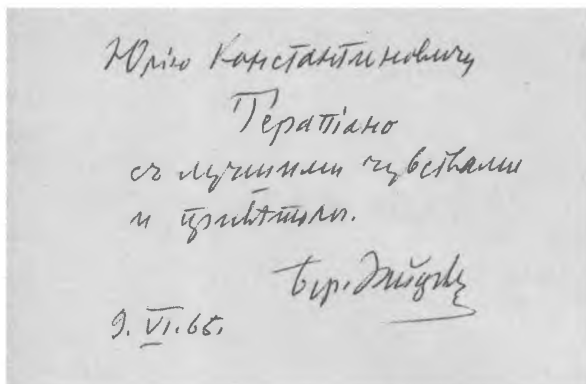 Юрію Константиновичу
Терапіано
съ лучшими чувствами
и привѣтомъ.
Бор. Зайцевъ
9. VI. 65.